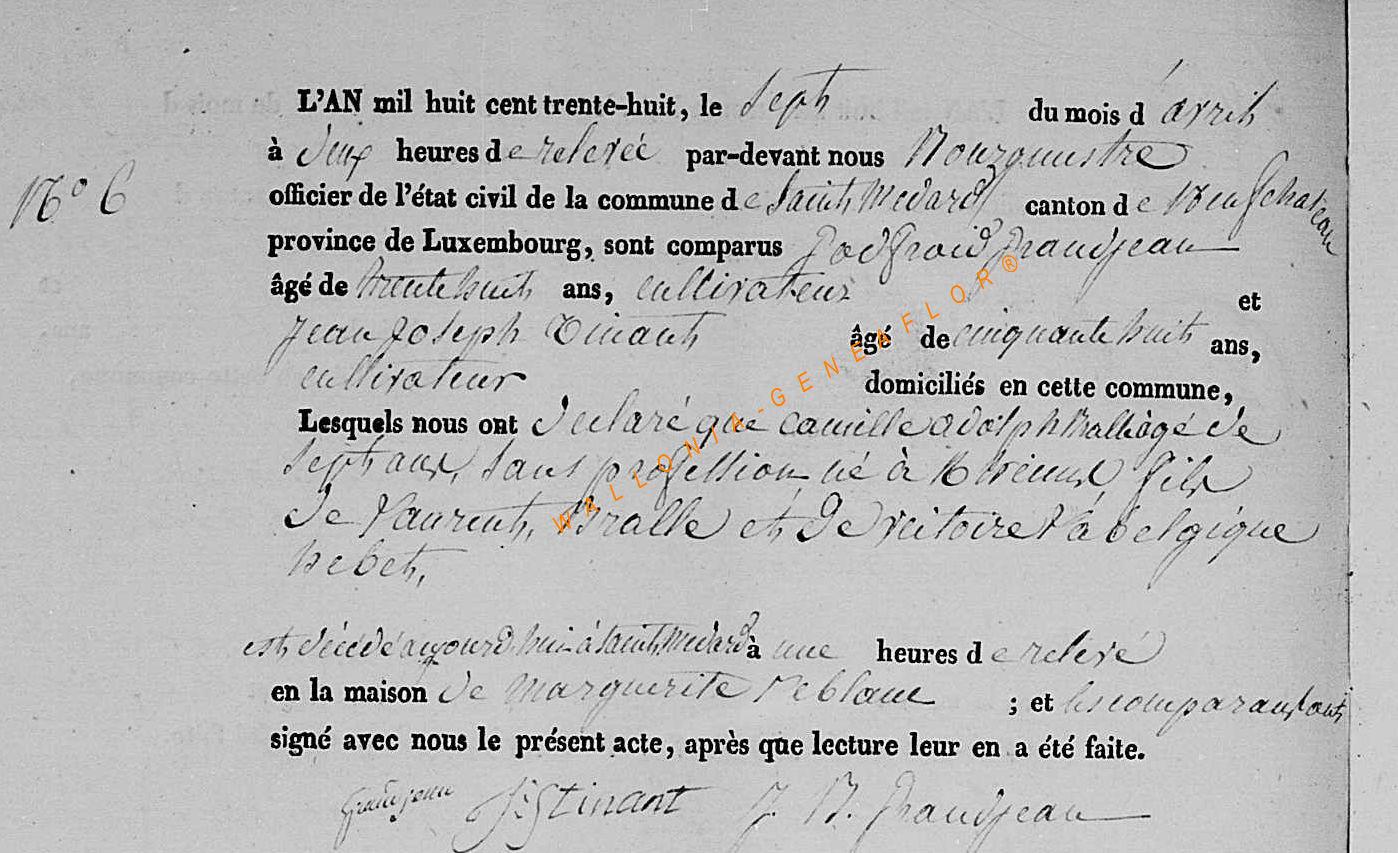 L'AN mil huit cent trente-huit, le sept du mois d'avril
à deux heures de relevée par-devant nous Bourguestre
N° 6
officier de l'état civil de la commune de Saint Medard canton de Neufchateau
province de Luxembourg, sont comparus Godfroid Grandjean
âgé de trente huit ans, cultivateur et
Jean Joseph Tinant âgé de cinquante huit ans,
cultivateur domiciliés en cette commune,
Lesquels nous ont declaré que camille adolph Bralle agé de
sept ans, sans profession né à fils
de Laurent, Bralle et de victoire La belgique
hebet,
est décédé aujourd'hui à Saint Medard à une heures de relevé
en la maison de Marguerite Leblanc ; et les comparants ont
signé avec nous le présent acte, après que lecture leur en a été faite.
grandjean JJ Tinant J. B. Grandjean
WALLONIA-GENEAFLOR®